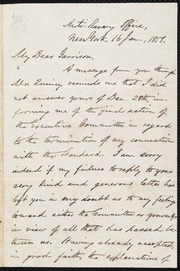 Anti-Slavery Office,
New York, 16 Jan., 1858.
My Dear Garrison,
A message from you through
Mr. Quincy reminds me that I did
not answer yours of Dec. 28th, in-
forming me of the
the Executive Committee in regard
to the termination of my connection
with the Standard. I am sorry
indeed if my failure to reply to your
very kind and generous letter has
led you in any doubt as to my feelings
toward either the Committee or yourself
in view of all that has passed be-
tween us. Having already accepted,
in good faith, the explanations of